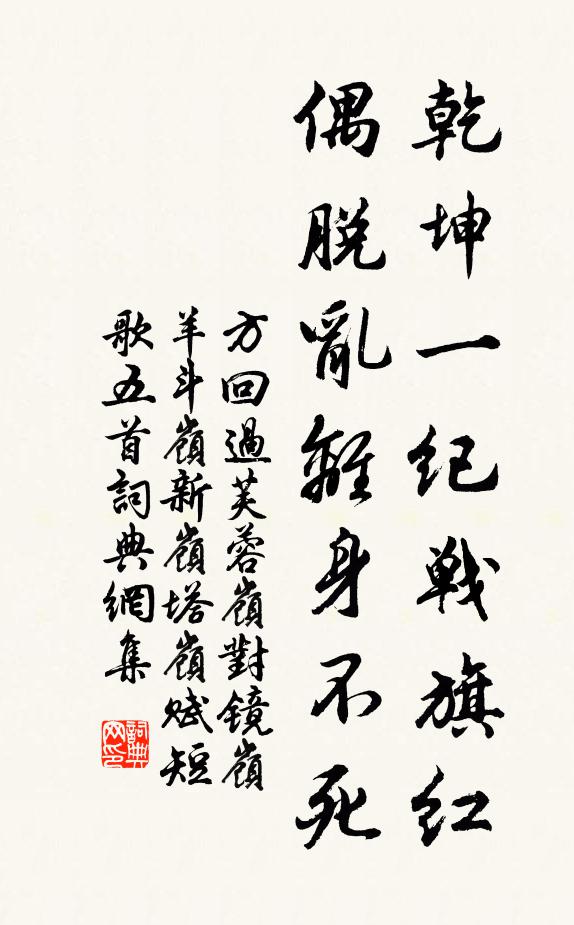 乾坤一纪戦旗红
偶脱亂離身不死
方回過芙蓉嶺對鏡嶺
羊斗嶺新嶺塔嶺賦短
歌五首詞典網集
詞典网印